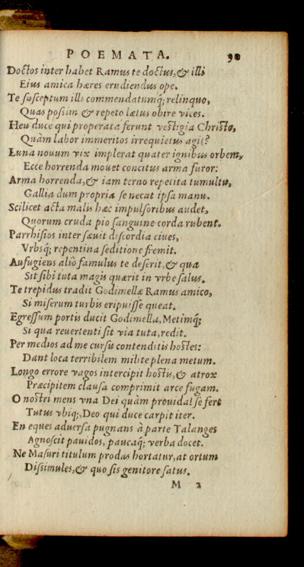 POEMATA. 90
Doctos inter habet Ramus te doctius, & illi
Eius amica hæres erudiendus ope.
Te susceptum illi commendatumq; relinquo,
Quas possim & repeto lætus obire vices.
Heu duce qui properata ferunt vestigia Christo,
Quàm labor immeritos irrequietus agit?
Luna nouum vix implerat quater ignibus orbem,
Ecce horrenda mouet concitus arma furor:
Arma horrenda, & iam terno repetita tumultu,
Gallia dum propria se necat ipsa manu.
Scilicet acta malis hæc impulsoribus audet,
Quorum cruda pio sanguine corda rubent.
Parrhisios inter sæuit discordia ciues,
Vrbsq; repentina seditione fremit.
Aufugiens aliò famulus te deserit, & qua
Sit sibi tuta magis quærit in vrbe salus.
Te trepidus tradit Godinellæ Ramus amico,
Si miserum turbis eripuisse queat.
Egressum portis ducit Godinella, Metimq;
Si qua reuertenti sit via tuta, redit.
Per medios ad me cursu contenditis hostes:
Dant loca terribilem milite plena metum.
Longo errore vagos intercipit hostis, & atrox
Præcipitem clausa comprimit arce fugam.
O nostri mens vna Dei quàm prouida! se fert
Tutus vbiq;, Deo qui duce carpit iter.
En eques aduersa pugnans à parte Talanges
Agnoscit pauidos, paucaq; verba docet.
Ne Masuri titulum prodas hortatur, at ortum
Dissimules, & quo sis genitore satus.
M 2